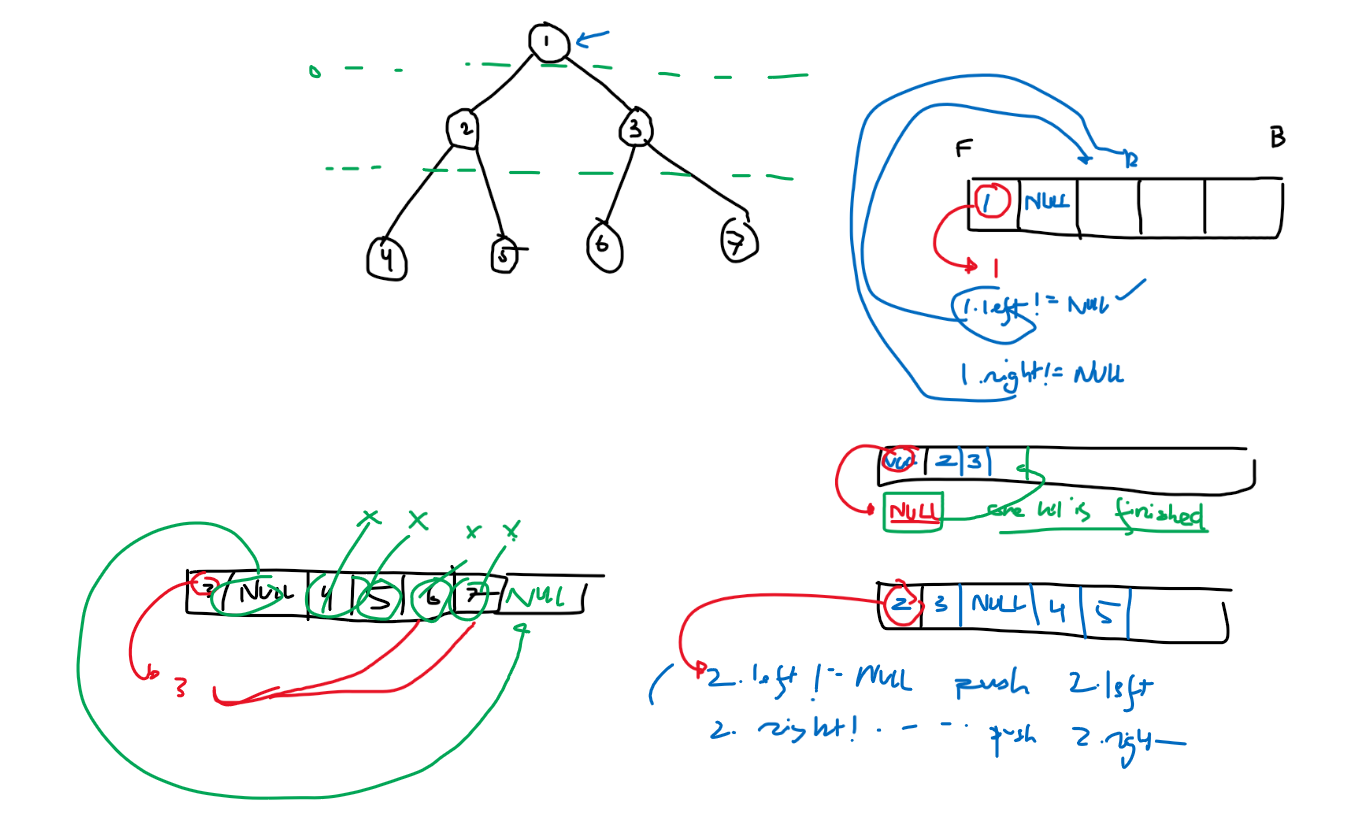 1
2 3
4 5 6 7
F B
1 NULL
1
1.left != NULL
1.right != NULL
NULL 2 3
NULL is finished
3 NULL 4 5 6 7 NULL
x x x x
3
2 3 NULL 4 5
2.left != NULL push 2.left
2. right! . - - . push